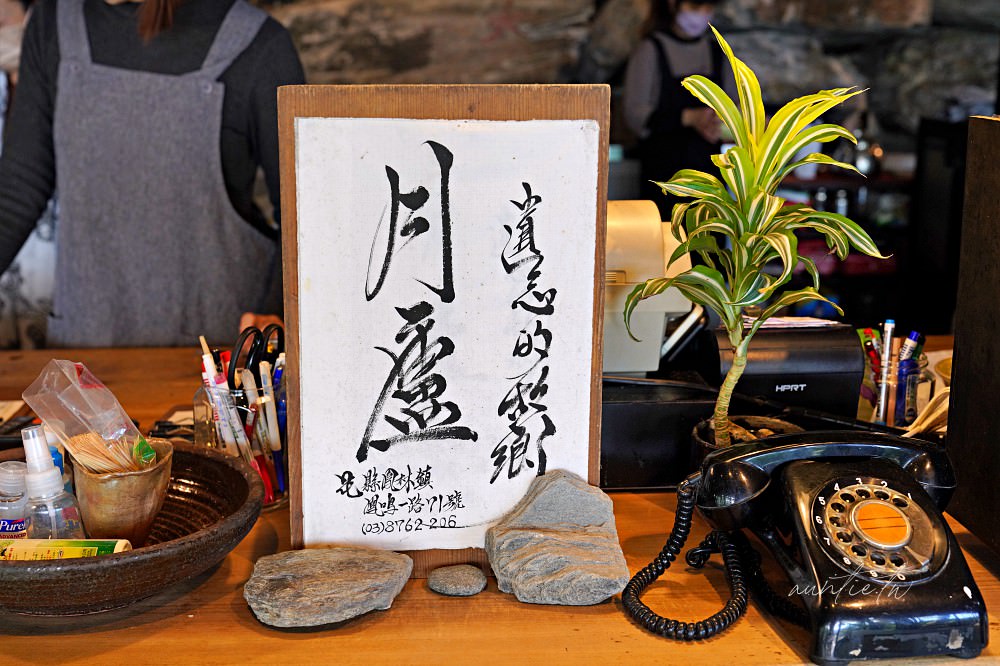 遺忘的鄉
月廬
花縣鳳林鎮
鳳鳴一路71號
(03)8762-206
HPRT
auntie.tw